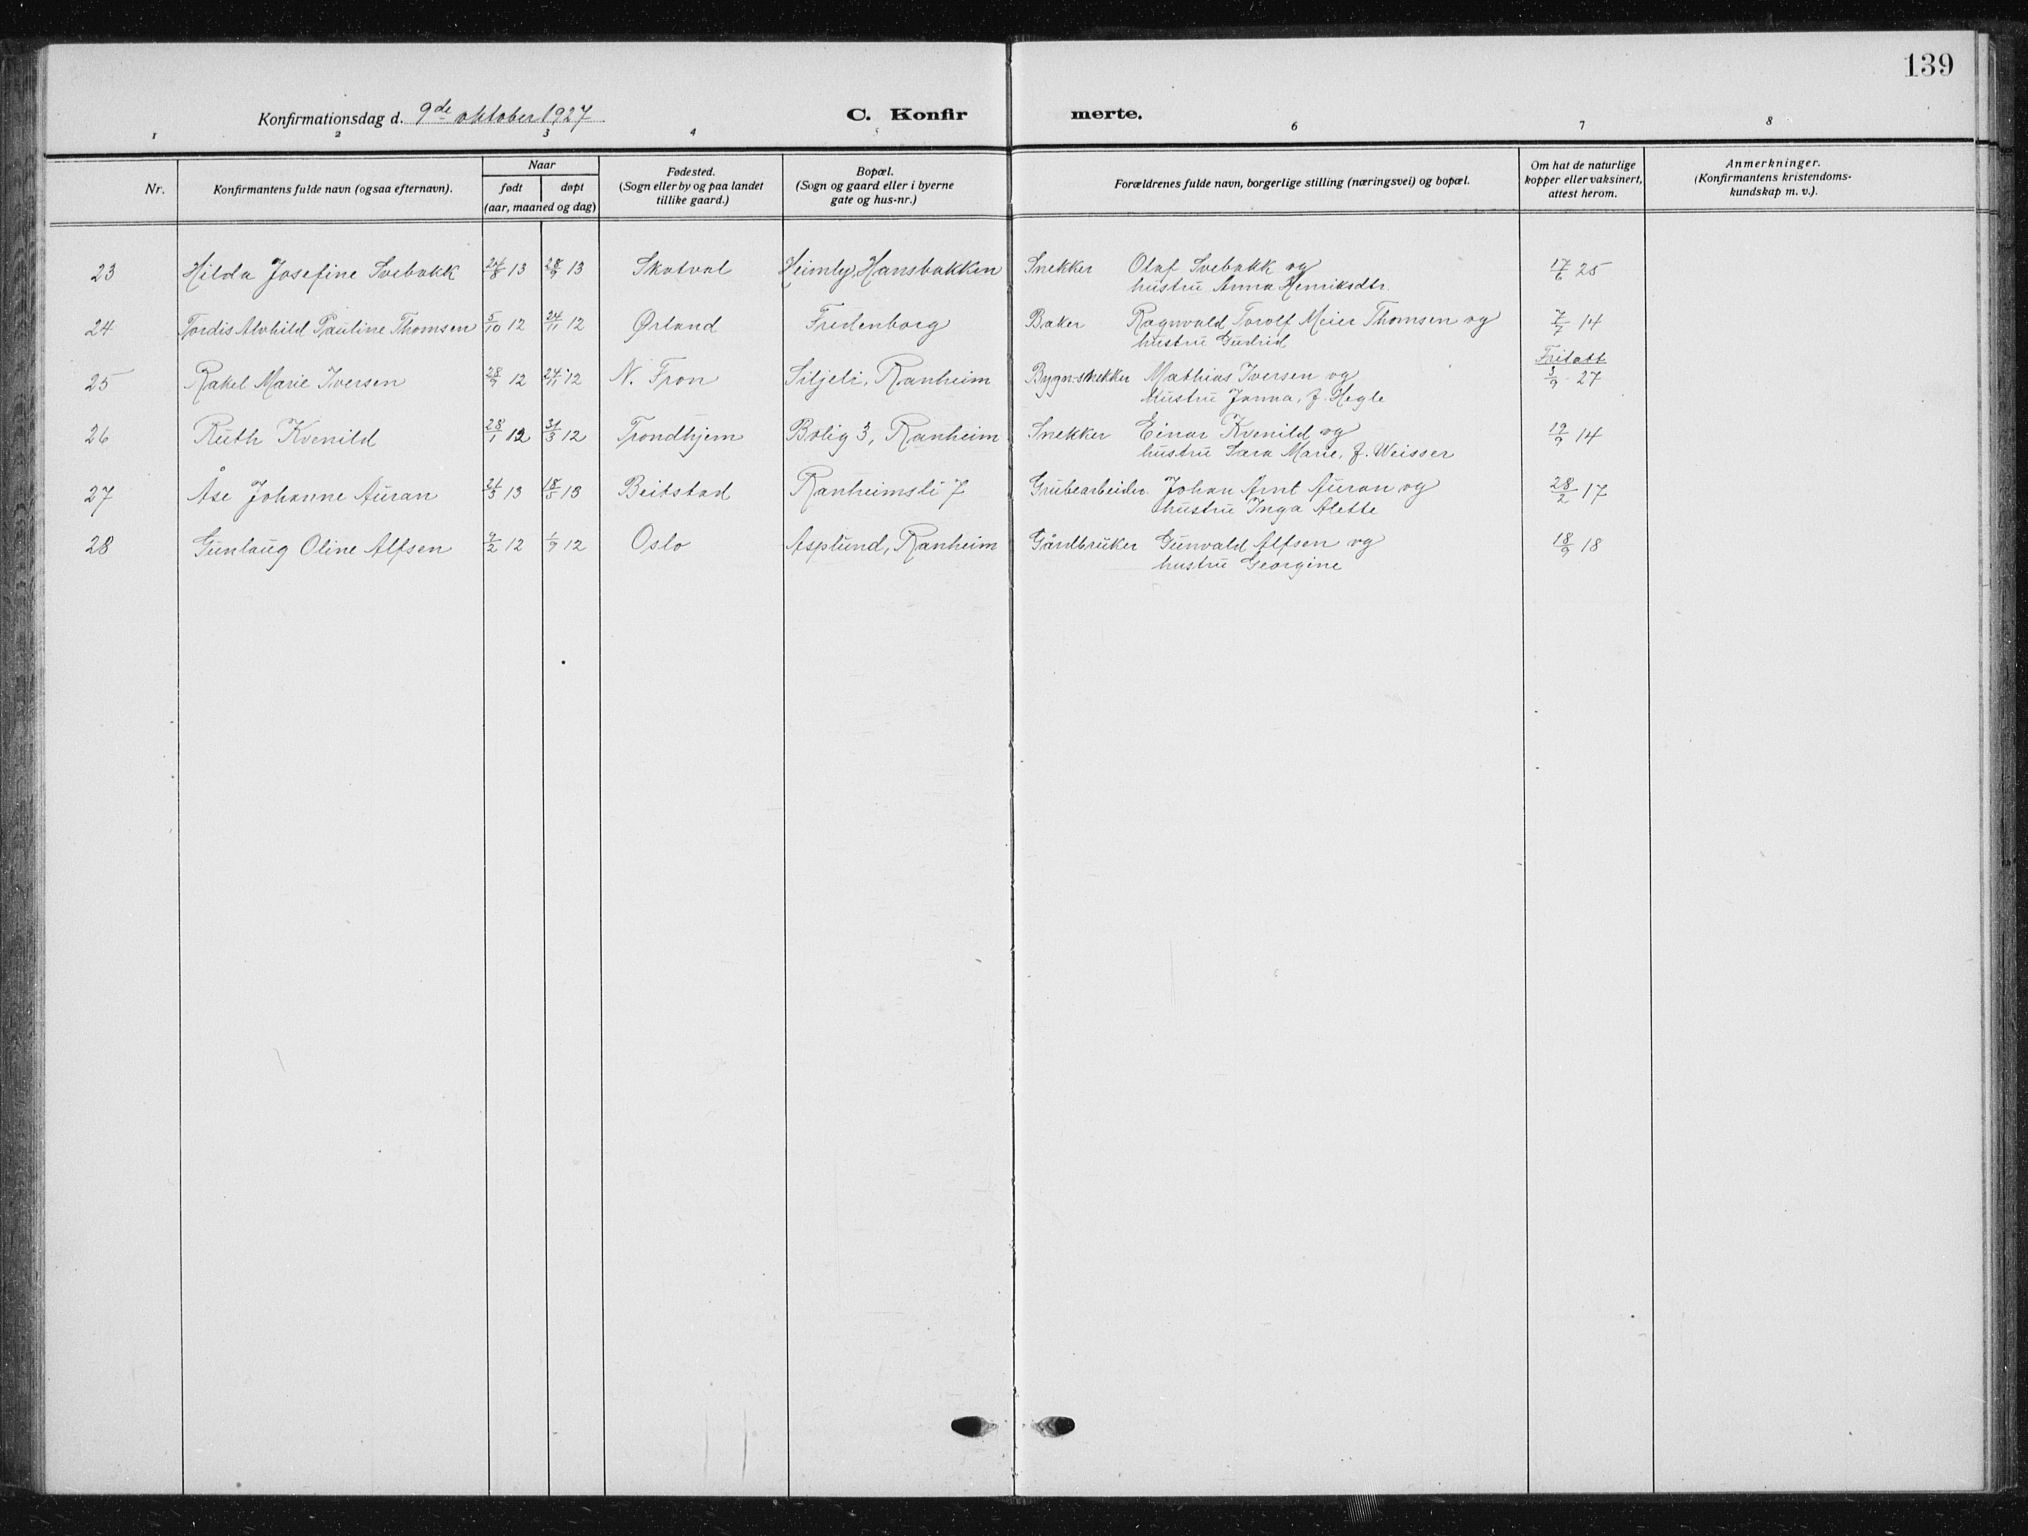 139
Konfirmationsdag d. 9de oktober 1927
C. Konfir merte.
1 2 3 4 5 6 7 8
Nr.
Konfirmantens fulde navn (ogsaa efternavn).
Naar
født døpt
(aar, maaned og dag)
Fødested.
(Sogn eller by og paa landet
tillike gaard.)
Bopæl.
(Sogn og gaard eller i byerne
gate og hus-nr.)
Forældrenes fulde navn, borgerlige stilling (næringsvei) og bopæl.
Om hat de naturlige
kopper eller vaksinert,
attest herom.
Anmerkninger.
(Konfirmantens kristendoms-
kundskap m. v.).
23 Hilda Josefine Svebakk 13 28/9 13 Skatval Heimly, Hansbakken Snekker Olaf Svebakk og 17/6 25
hustru Anna Henriksdtr.
24 Tordis Alvhild Pauline Thomsen 5/10 12 24/11 12 Ørland Fredenborg Baker Ragnvald Torolf Meier Thomsen og 7/7 14
hustru Gudrid
Fritatt
25 Rakel Marie Iversen 28/9 12 24/11 12 N. Fron Siljeli, Ranheim Bygn.snekker Mathias Iversen og 3/9 27
hustru Janna, f. Hegle
26 Ruth Kvenild 28/1 12 31/3 12 Trondhjem Bolig 3, Ranheim Snekker Einar Kvenild og 19/9 14
hustru Sara Marie, f. Weisser
27 Åse Johanne Auran 31/3 13 18/5 13 Beitstad Ranheimsli 7 Grubearbeider Johan Arnt Auran og 28/2 17
hustru Inga Alette
28 Gunlaug Oline Alfsen 9/2 12 1/9 12 Oslo Asplund, Ranheim Gårdbruker Gunvald Alfsen og 18/9 18
hustru Georgine